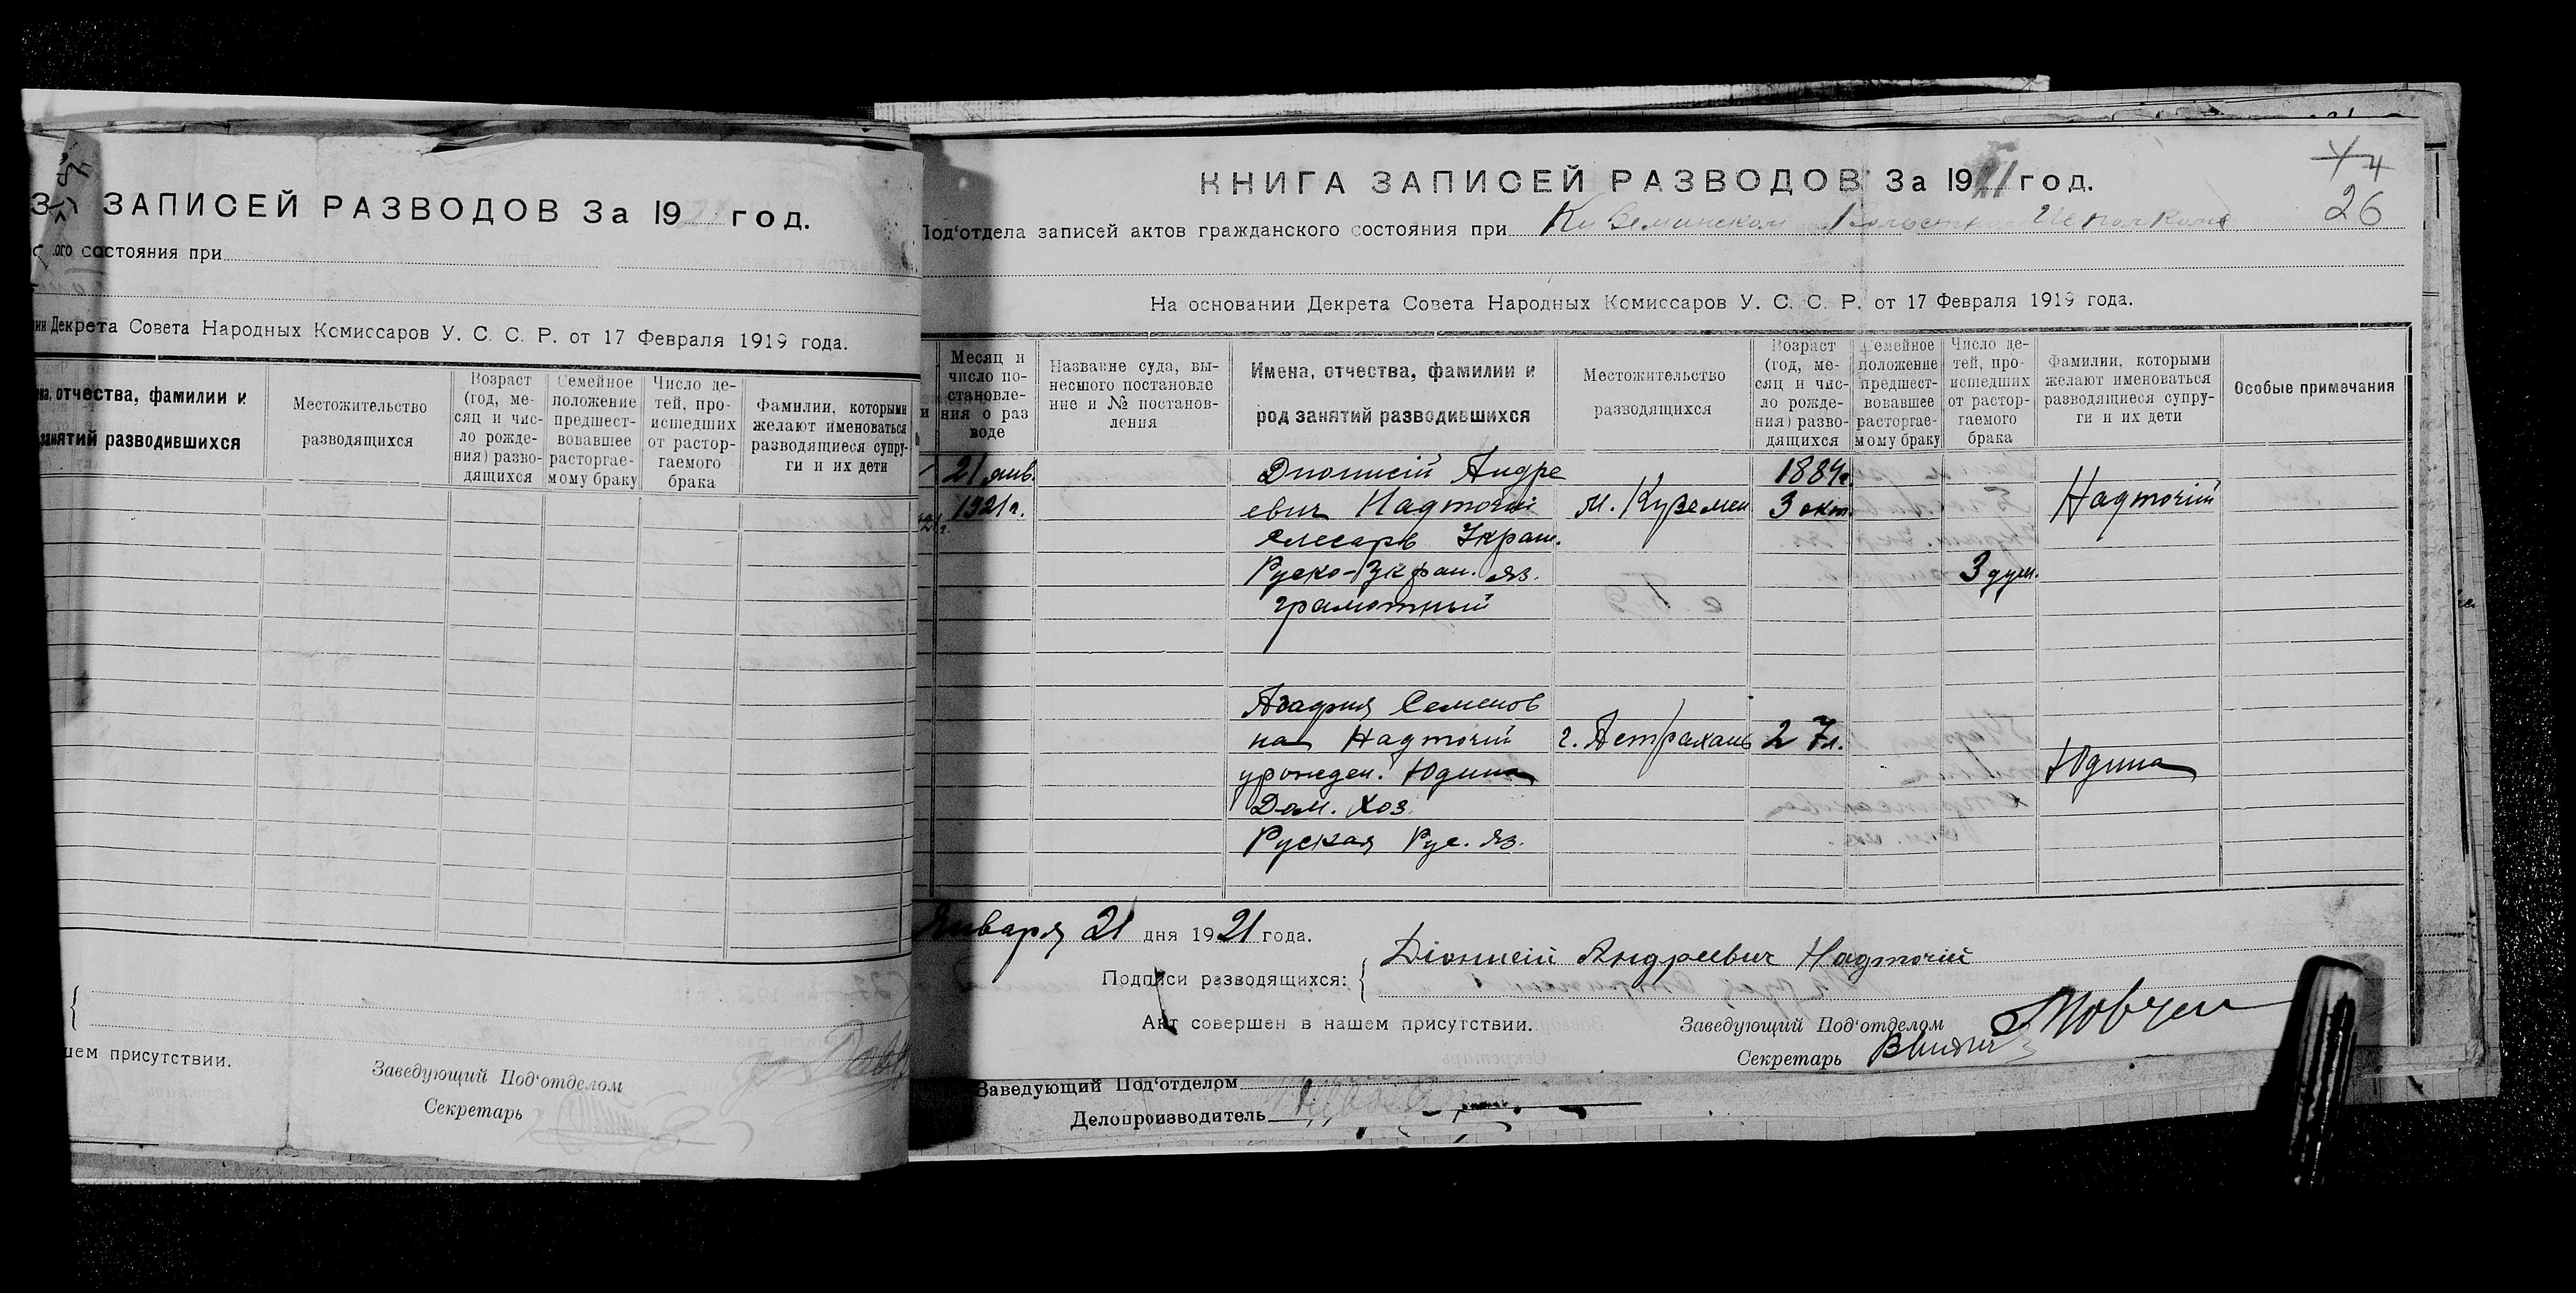 ЗАПИСЕЙ РАЗВОДОВ За 19 год.
состояния при
Декрета Совета Народных Комиссаров У. С. С. Р. от 17 Февраля 1919 года.
отчества, фамилии и
занятий разводившихся
Местожительство
разводящихся
Возраст
(год, ме-
сяц и чис-
ло рожде-
ния) разво-
дящихся
Семейное
положение
предшест-
вовавшее
расторгае-
мому браку
Число де-
тей, про-
исшедших
от растор-
гаемого
брака
Фамилии, которыми
желают именоваться
разводящиеся супру-
ги и их дети
присутствии.
Заведующий Под'отделом
Секретарь
КНИГА ЗАПИСЕЙ РАЗВОДОВ За 1921 год.
4
26
Под'отдела записей актов гражданского состояния при Куземинском Исполкоме
На основании Декрета Совета Народных Комиссаров У. С. С. Р. от 17 Февраля 1919 года.
Месяц и
число по-
становле-
ния о раз
воде
Название суда, вы-
несшого постановле
ние и № постанов-
ления
Имена, отчества, фамилии и
род занятий разводившихся
Местожительство
разводящихся
Возраст
(год, ме-
сяц и чис-
ло рожде-
ния) разво-
дящихся
Семейное
положение
предшест-
вовавшее
расторгае-
мому браку
Число де-
тей, про-
исшедших
от растор-
гаемого
брака
Фамилии, которыми
желают именоваться
разводящиеся супру-
ги и их дети
Особые примечания
21 янв. Дионисій Андре 1884г.
1921г. евич Надточій м. Куземен 3 окт. Надточій
слесарь Украин.
Руско-Украин. яз. 3 душ.
грамотный
Агафия Семенов
на Надточій г. Астрахань 27л.
урожден. Юдина Юдина
Дом. Хоз.
Руская Рус. яз.
Января 21 дня 1921 года.
Подписи разводящихся: Діонисій Андреевич Надточій
Акт совершен в нашем присутствии.
Заведующий Под'отделом Мовчан
Секретарь
Заведующий Под'отделом
Делопроизводитель